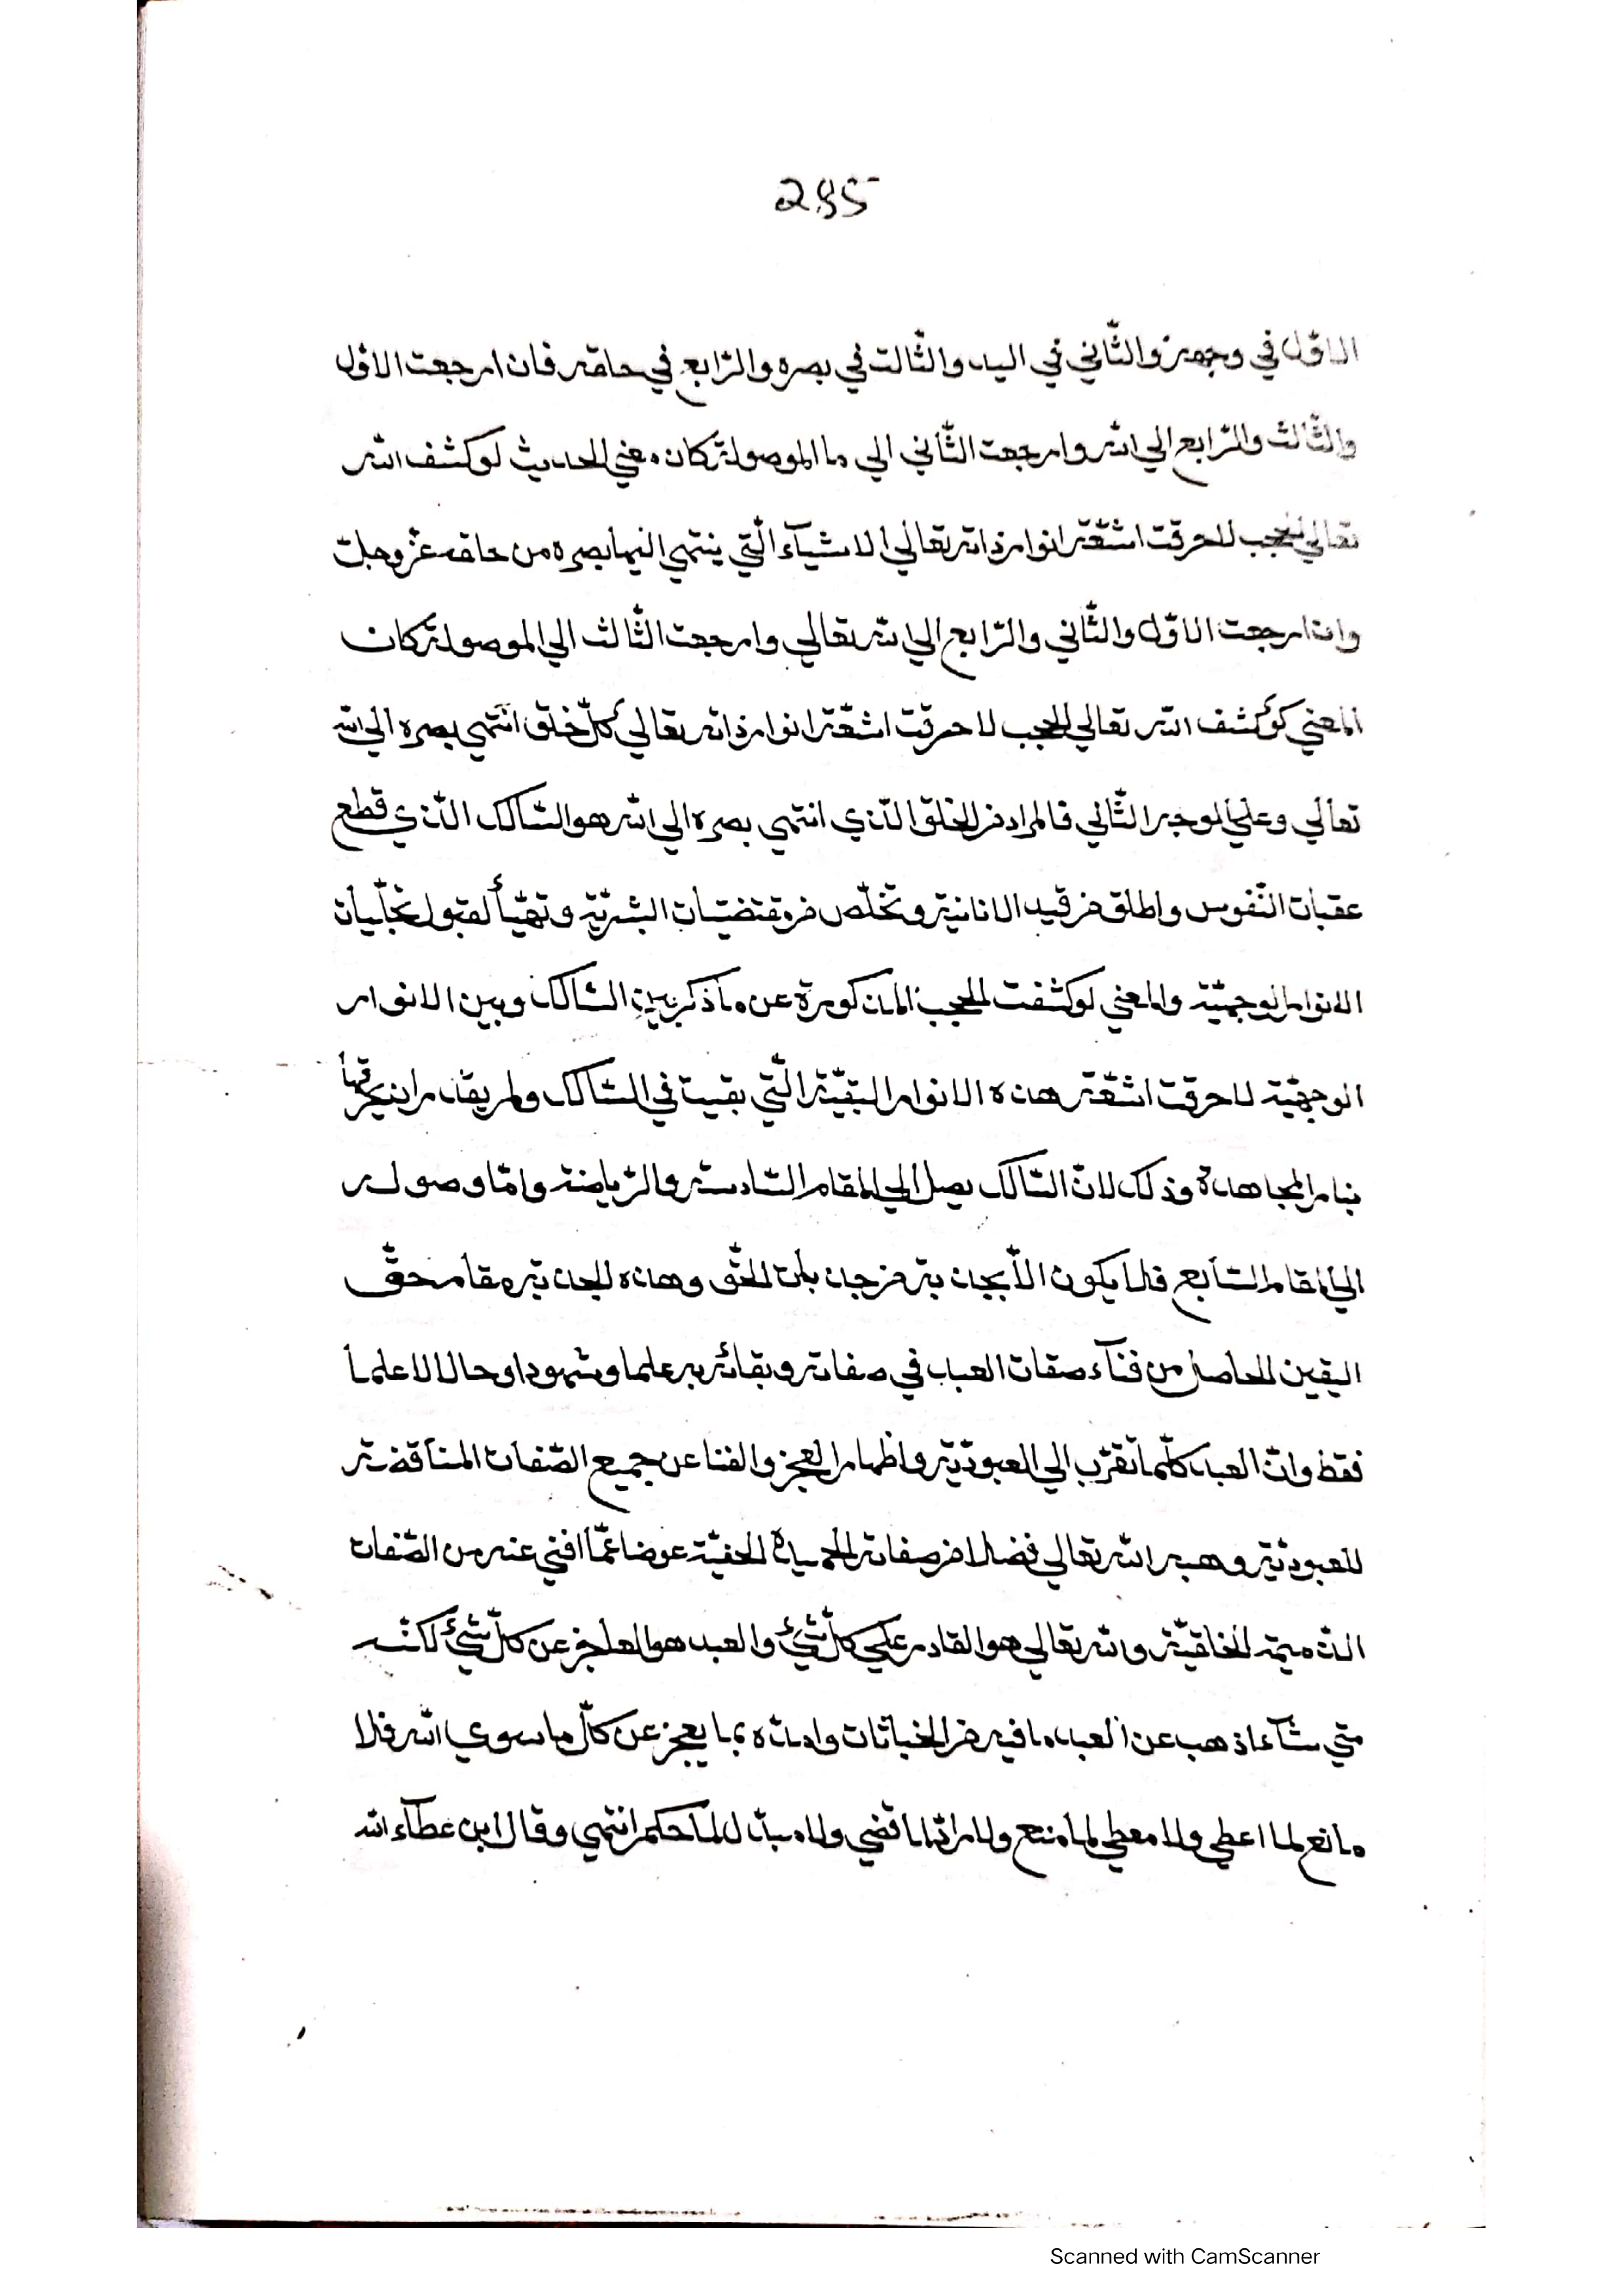 285
الاوّل في وجهه والثّاني في اليه والثّالث في بصره والرّابع في خلقه فان ارجعت الاوّل
والثّالث والرّابع الي الله وارجعت الثّاني الي ما الموصولة كان معني الحديث لوكشف الله
تعالي الحجب لاحرقت اشعّة انوار ذاته تعالي الاشيآء الّتي ينتهي اليها بصره من خلقه عزّوجلّ
واذا ارجعت الاوّل والثّاني والرّابع الي الله تعالي وارجعت الثّالث الي الموصولة كان
المعني لوكشف الله تعالي الحجب لاحرقت اشعّة انوار ذاته تعالي كلّ خلق انتهي بصره الي الله
تعالي وعلي الوجه الثّاني فالمراد من الخلق الّذي انتهي بصره الي الله هو السّالك الّذي قطع
عقبات النّفوس واطلق من قيد الانانية وتخلّص من مقتضيات البشريّة وتهيّأ لقبول تجلّيات
الانوار الوجهيّة والمعني لوكشفت الحجب المذكورة عن ما ذكر بين السّالك وبين الانوار
الوجهيّة لاحرقت اشعّة هذه الانوار البقيّة الّتي بقيت في السّالك ولم يقدر ان يحرقها
بنار المجاهدة وذلك لانّ السّالك يصل الي المقام السّادسة والرّياضة وامّا وصوله
الي المقام السّابع فلا يكون الّا بجذبة من جذبات الحقّ وهذه الجذبة مقام حقّ
اليقين الحاصل من فنآء صفات العبد في صفاته وبقائه به علما وشهودا وحالا لا علما
فقط وانّ العبد كلّما تقرّب الي العبوديّة واظهار العجز والفنا عن جميع الصّفات المناقضة
للعبوديّة وهبه الله تعالي فضلا من صفاته الحميدة الحقيّة عوضا عمّا افني عنه من الصّفات
الذّميمة الخلقيّة والله تعالي هو القادر علي كلّ شيء والعبد هو العاجز عن كلّ شيء لكنّه
متي شآء اذهب عن العبد ما فيه من الخباثات وامدّه بما يعجز عن كلّ ما سوي الله فلا
مانع لما اعطي ولا معطي لما منع ولا رادّ لما قضي ولا مبدّل لما حكم انتهي وقال ابن عطآء الله
Scanned with CamScanner